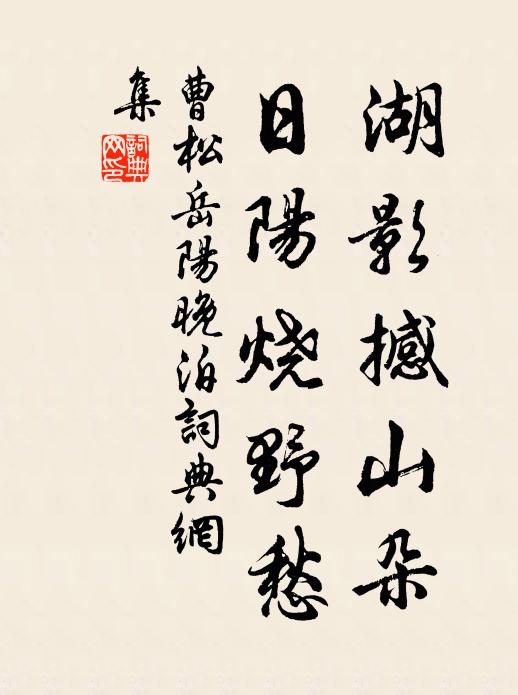 湖影撼山朵
日陽烧野愁
曹松岳陽晚泊詞典網
集
詞典網印